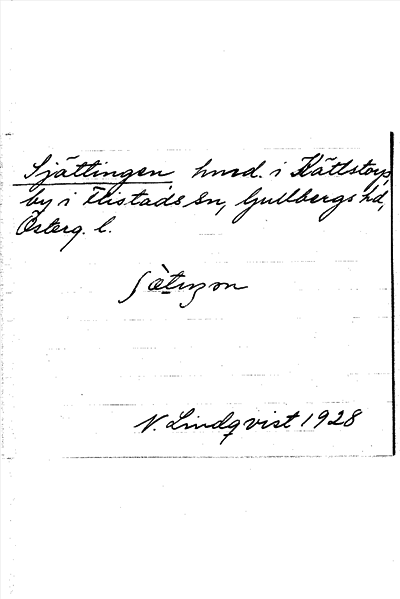 Sjättingen hmd. i Kättstorps
by i Flistads sn, Gullbergs hd,
Österg. l.
N. Lindqvist 1928